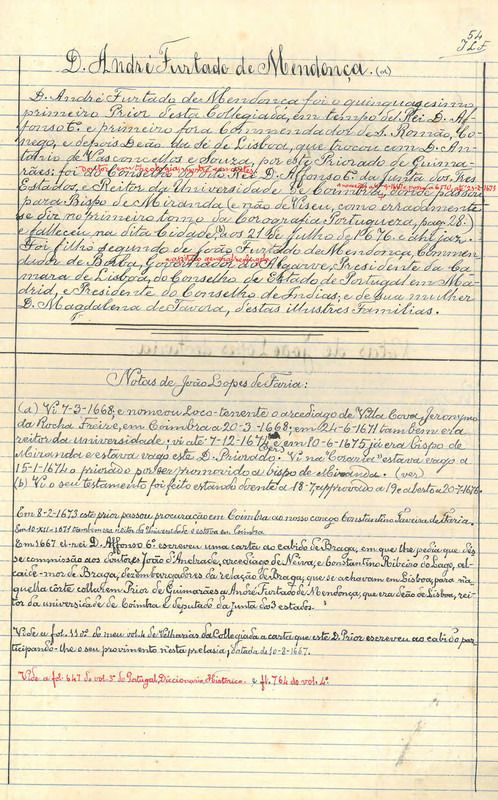 54
J L F
D. André Furtado de Mendonça. (a)
D. André Furtado de Mendonça foi o quinquagesimo
primeiro Prior d'esta Collegiada, em tempo del Rei D. Af-
fonso 6º. e primeiro fora Commendador de S. Romão, Co-
nego, e depois Deão da Sé de Lisboa, que trocou com D. An-
tonio de Vasconcellos e Souza, por este Priorado de Guima-
rães: foi do Conselho do dito Rei D. Affonso 6º. da Junta dos Tres
Estados, e Reitor da Universidade de Coimbra, donde passou
para Bispo de Miranda (e não de Viseu, como erradamente
se diz no primeiro tomo da Corografia Portugueza, pag. 28.)
e falleceu na dita Cidade, (b) aos 21 de julho de 1676. e ahi jaz.
Foi filho segundo de João Furtado de Mendonça, Commen-
dador de Borba, Governador do Algarve, Presidente da Ca-
mara de Lisboa, do Conselho de Estado de Portugal em Ma-
drid, e Presidente do Conselho de Indias; e de sua mulher
D. Magdalena de Tavora, d'estas illustres Familias.
Notas de João Lopes de Faria:
(a) Vi 7-3-1668, e nomeou Loco-tenente o arcediago de Villa Cova, Jeronymo
da Rocha Freire, em Coimbra a 20-3-1668; em 24-6-1671 tambem era
reitor da universidade; vi até 7-12-1674, e em 10-6-1675 já era bispo de
Miranda e estava vago este D. Priorado. Vi na "Coraria" estava vago a
15-1-1674 o priorado por ser promovido a bispo de Miranda. (ver)
(b) Vi o seu testamento foi feito estando doente a 18-7, approvado a 19 e aberto a 20-7-1676.
Em 8-2-1673 este prior passou procuração em Coimbra ao nosso conego Constantino Taveira de Faria.
Em 10-XII-1671 tambem era reitor da Universidade e estava em Coimbra
Em 1667 el-rei D. Affonso 6º escreveu uma carta ao cabido de Braga, em que lhe pedia que dés-
se commissão aos doutores João d'Andrade, arcediago de Neiva, e Constantino Ribeiro do Lago, al-
caide-mór de Braga, dezembargadores da relação de Braga, que se achavam em Lisboa, para na-
quella côrte collarem Prior de Guimarães a André Furtado de Mendonça, que era deão de Lisboa, rei-
tor da universidade de Coimbra e deputado da Junta dos 3 estados.
Vide a fol. 110 vº do meu vol. 4 de Velharias da Collegiada a carta que este D. Prior escreveu ao cabido par-
ticipando-lhe o seu provimento n'esta prelasia, datada de 10-8-1667.
Vide a fol. 647 do vol. 3º do Portugal, Diccionario Historico. e fl. 764 do vol. 4º